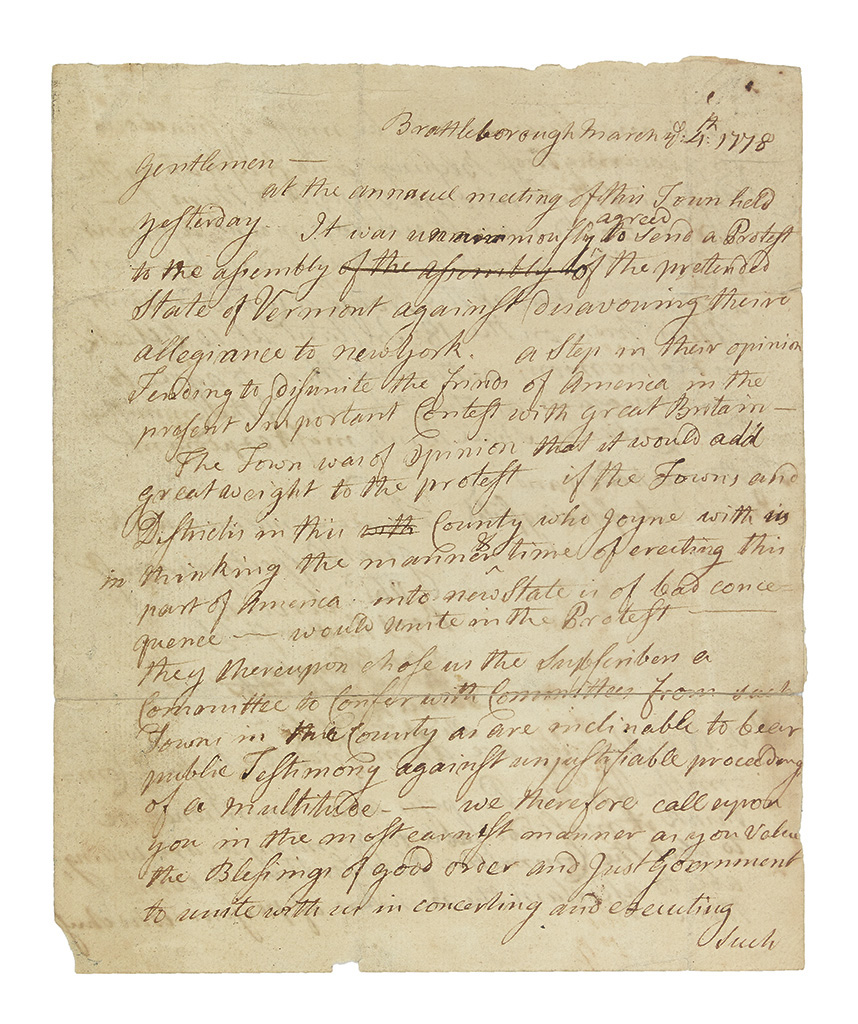 Brattleborough March ye. 4th: 1778
Gentlemen —
at the annauel meeting of this Town held
yesterday It was unanimously agreed to send a Protest
to the assembly of the assembly of the pretended
State of Vermont against disavouing theire
allegiance to newyork. a Step in their opinion
Tending to disunite the frinds of America in the
present Important Contest with great Britain —
The Town was of Opinion that it would add
great weight to the protest if the Towns and
Districts in this with County who Joyne with us
in thinking the manner & time of erecting this
part of America into new State is of bad conce=
quence — would unite in the Protest —
they thereupon chose us the Subscribers a
Committee to Confer with Committees from such
Towns in this County as are inclinable to bear
public Testimony against unjustifiable proceeding
of a multitude — we therefore call upon
you in the most earnest manner as you Value
the Blessings of good order and Just Goornment
to unite with us in concerting and executing
such